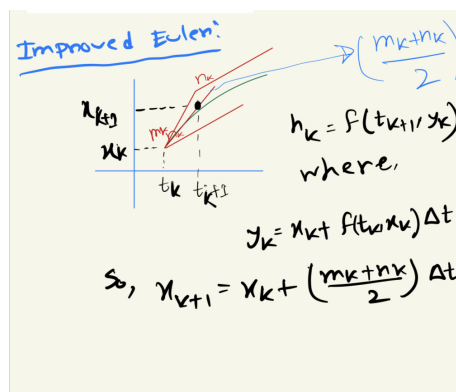 Improved Euler:
(mk+nk)/2
nk
xk+1
mk
xk
tk tk+1
nk = f(tk+1, yk)
where,
yk = xk + f(tk, xk) Δt
So, xk+1 = xk + ((mk+nk)/2) Δt